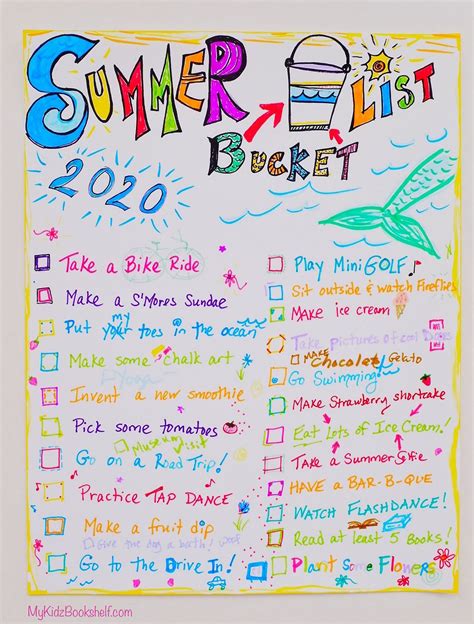 SUMMER LIST
BUCKET
2020
Take a Bike Ride
Make a S'Mores Sundae
my
Put your toes in the ocean
Make some chalk art
Invent a new smoothie
Pick some tomatoes
Museum visit
Go on a Road Trip!
Practice TAP DANCE
Make a fruit dip
Give the dog a bath! woof
Go to the Drive In!
Play Mini GOLF
Sit outside & watch Fireflies
Make ice cream
Take pictures of cool
MAKE Chocolate Gelato
Go Swimming
Make Strawberry shortcake
Eat Lots of Ice Cream!
Take a Summer
HAVE a BAR-B-QUE
WATCH FLASHDANCE!
Read at least 5 Books!
Plant Some Flowers
MyKidzBookshelf.com